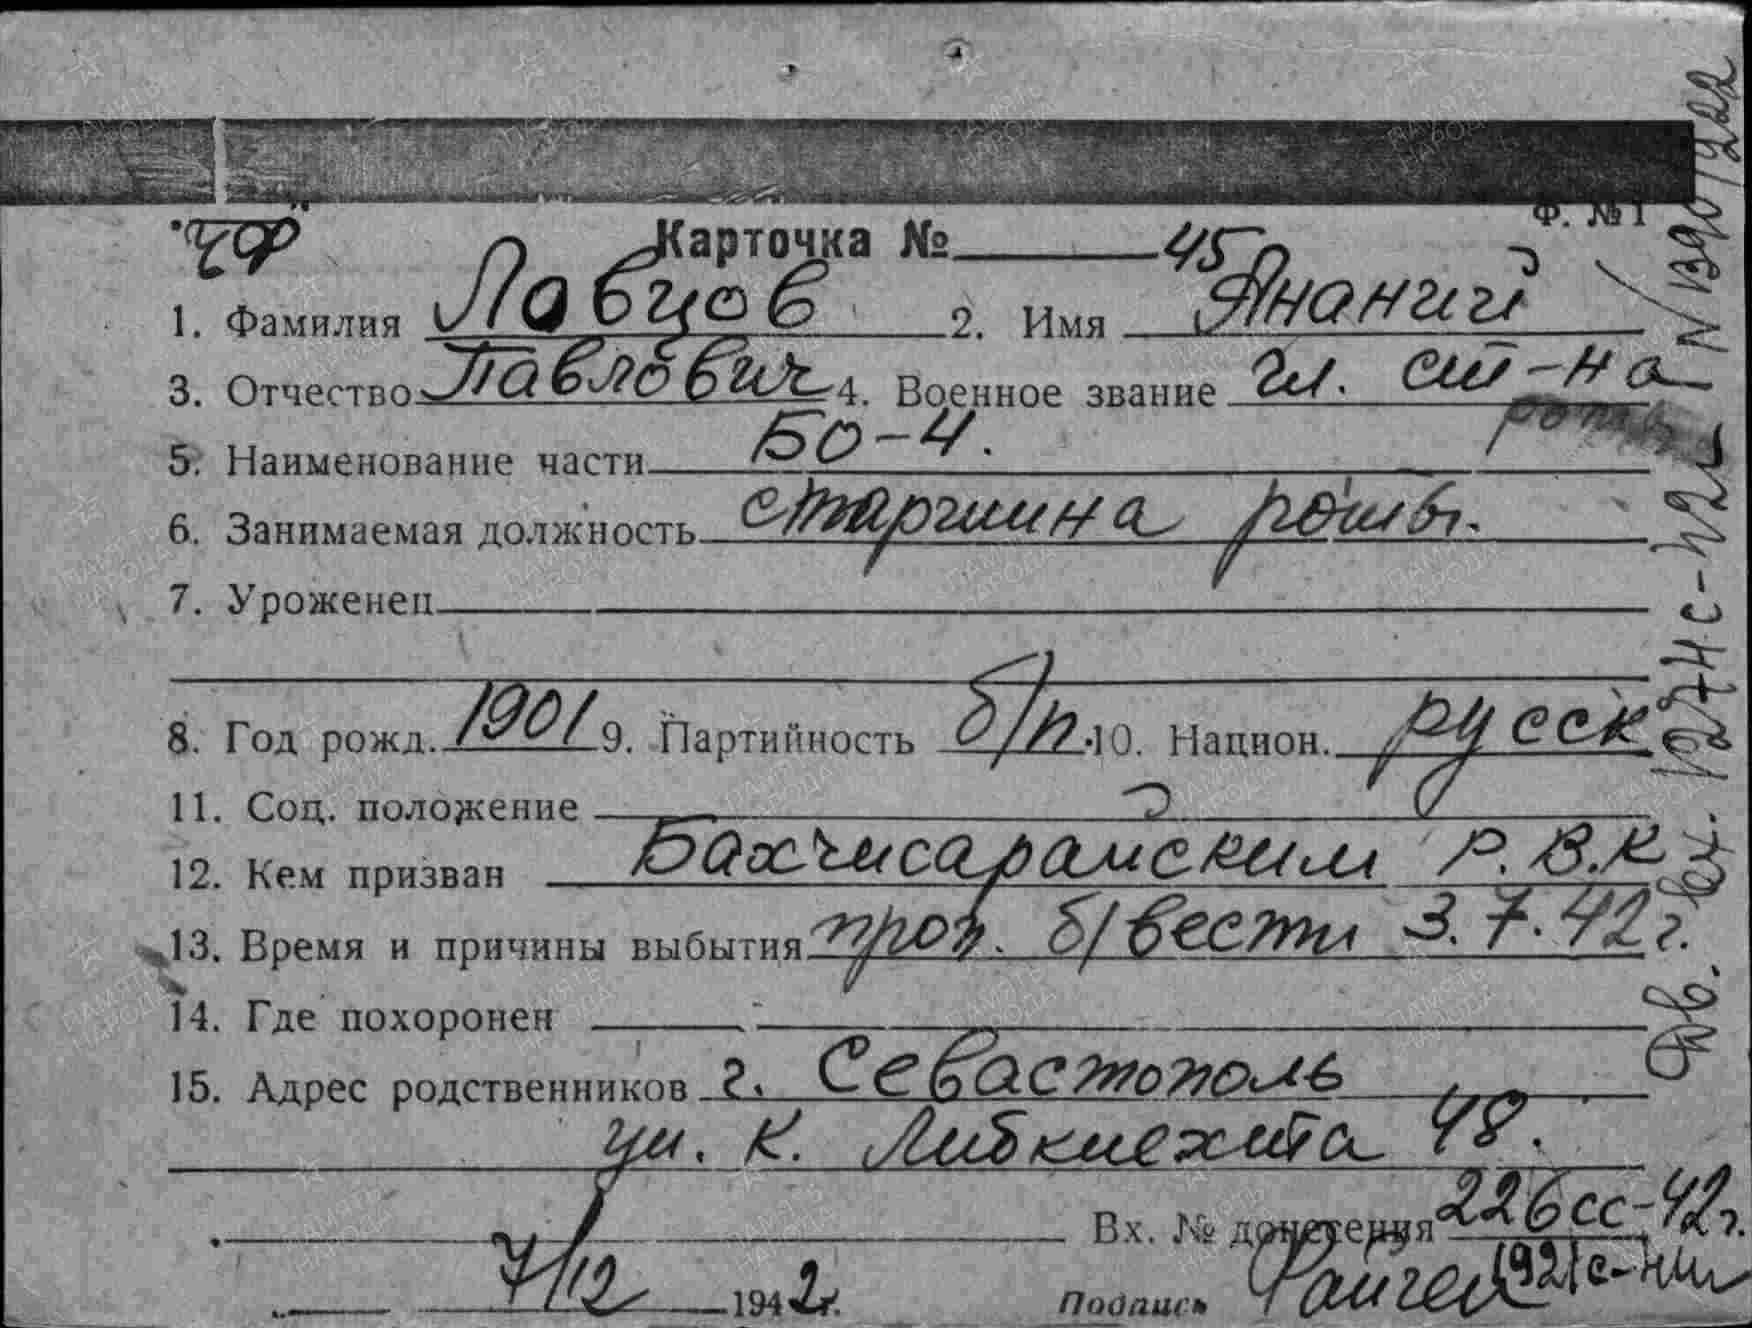 "ЧФ"
Ф. № 1
Карточка № 45
1. Фамилия Лавцов 2. Имя Ананий
3. Отчество Павлович 4. Военное звание гл. ст-на
5. Наименование части БО-4. роты
6. Занимаемая должность старшина роты.
7. Уроженец
8. Год рожд. 1901 9. Партийность б/п. 10. Национ. русск
11. Соц. положение
12. Кем призван Бахчисарайским Р.В.К
13. Время и причины выбытия проп. б/вести 3.7.42 г.
14. Где похоронен
15. Адрес родственников г. Севастополь
ул. К. Либкнехта 48.
Вх. № донесения 226сс-42г.
7/12 1942г. Подпись